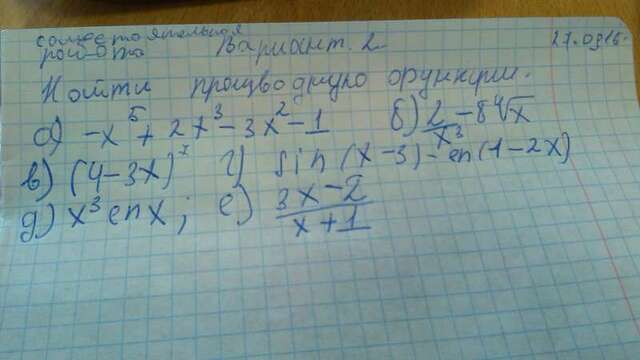 самостоятельная
работа Вариант 2 27.0916.
Найти производную функции.
а) -x⁵ + 2x³ - 3x² - 1 б) 2/x³ - 8∜x
в) (4-3x)⁷ г) sin(x-3) - ln(1-2x)
д) x³ ln x; е) (3x-2)/(x+1)